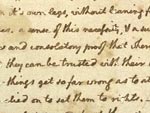 it's own legs, without leaning
a sense of this necessity, & a su
and consolatory proof that wher
they can be trusted with their
things get so far wrong as to a
lied on to set them to rights.